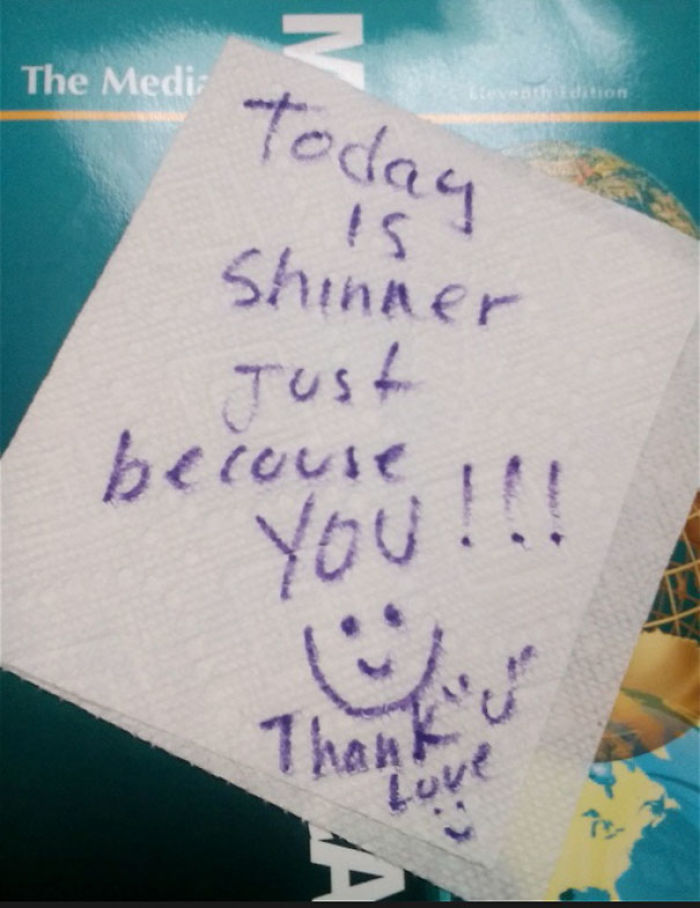 The Media
Eleventh Edition
Today
is
Shinner
Just
becouse
YOU !!!
Thank U
Love